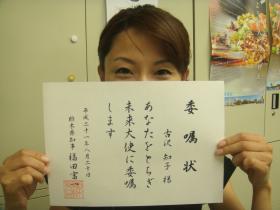 委嘱状
古沢 知子 様
あなたをとちぎ
未来大使に委嘱
します
平成二十一年八月二十日
栃木県知事 福田富一